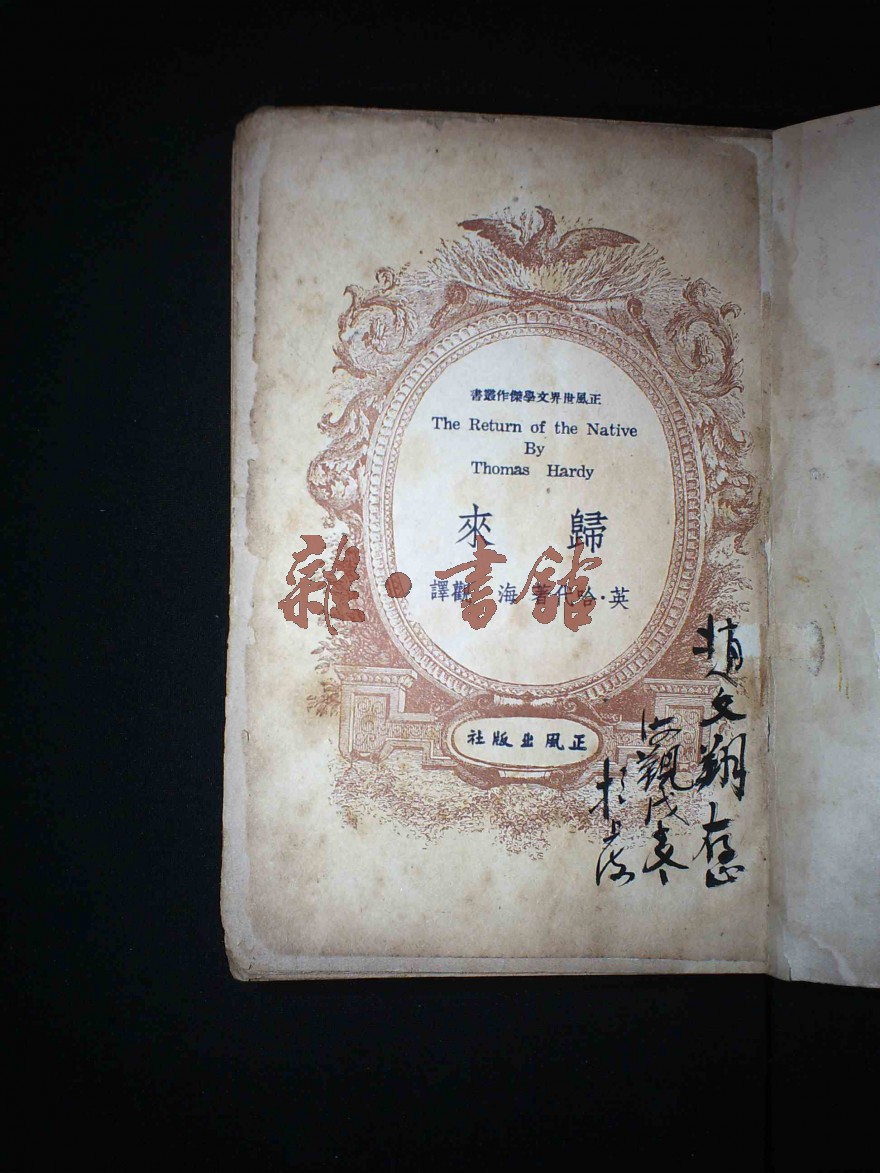 正風世界文學傑作叢書
The Return of the Native
By
Thomas Hardy
歸來
英·哈代著 海觀譯
正風出版社
雜·書館
趙文翔存
海觀戊冬
於上海